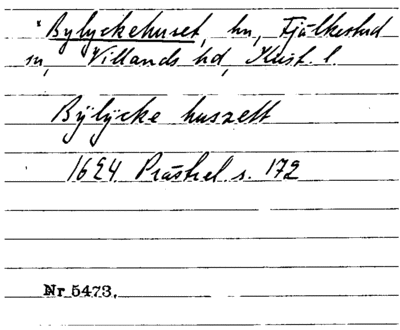 *Bylyckehuset, hn, Fjälkestad
sn, Villands hd, Krist. l.
Bÿlÿcke huszett
1624 Prästrel s. 172
Nr 5473.